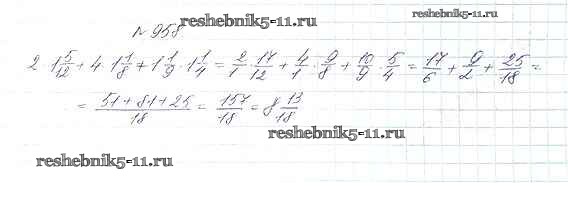 reshebnik5-11.ru
№958
reshebnik5-11.ru
2 · 1 5/12 + 4 · 1 1/8 + 1 1/9 · 1 1/4 = 2/1 · 17/12 + 4/1 · 9/8 + 10/9 · 5/4 = 17/6 + 9/2 + 25/18 =
= 51+81+25/18 = 157/18 = 8 13/18
reshebnik5-11.ru
reshebnik5-11.ru